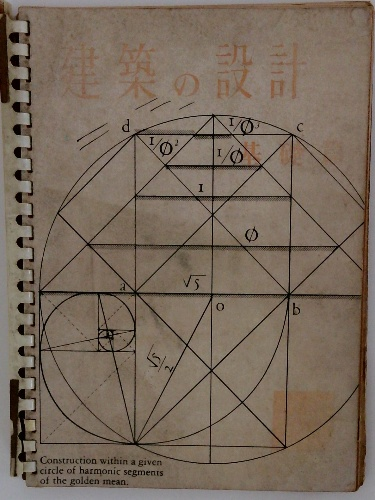 建築の設計
d
1/Ø³
c
1/Ø²
1/Ø
1
Ø
√5
a
o
b
√5/2
Construction within a given
circle of harmonic segments
of the golden mean.